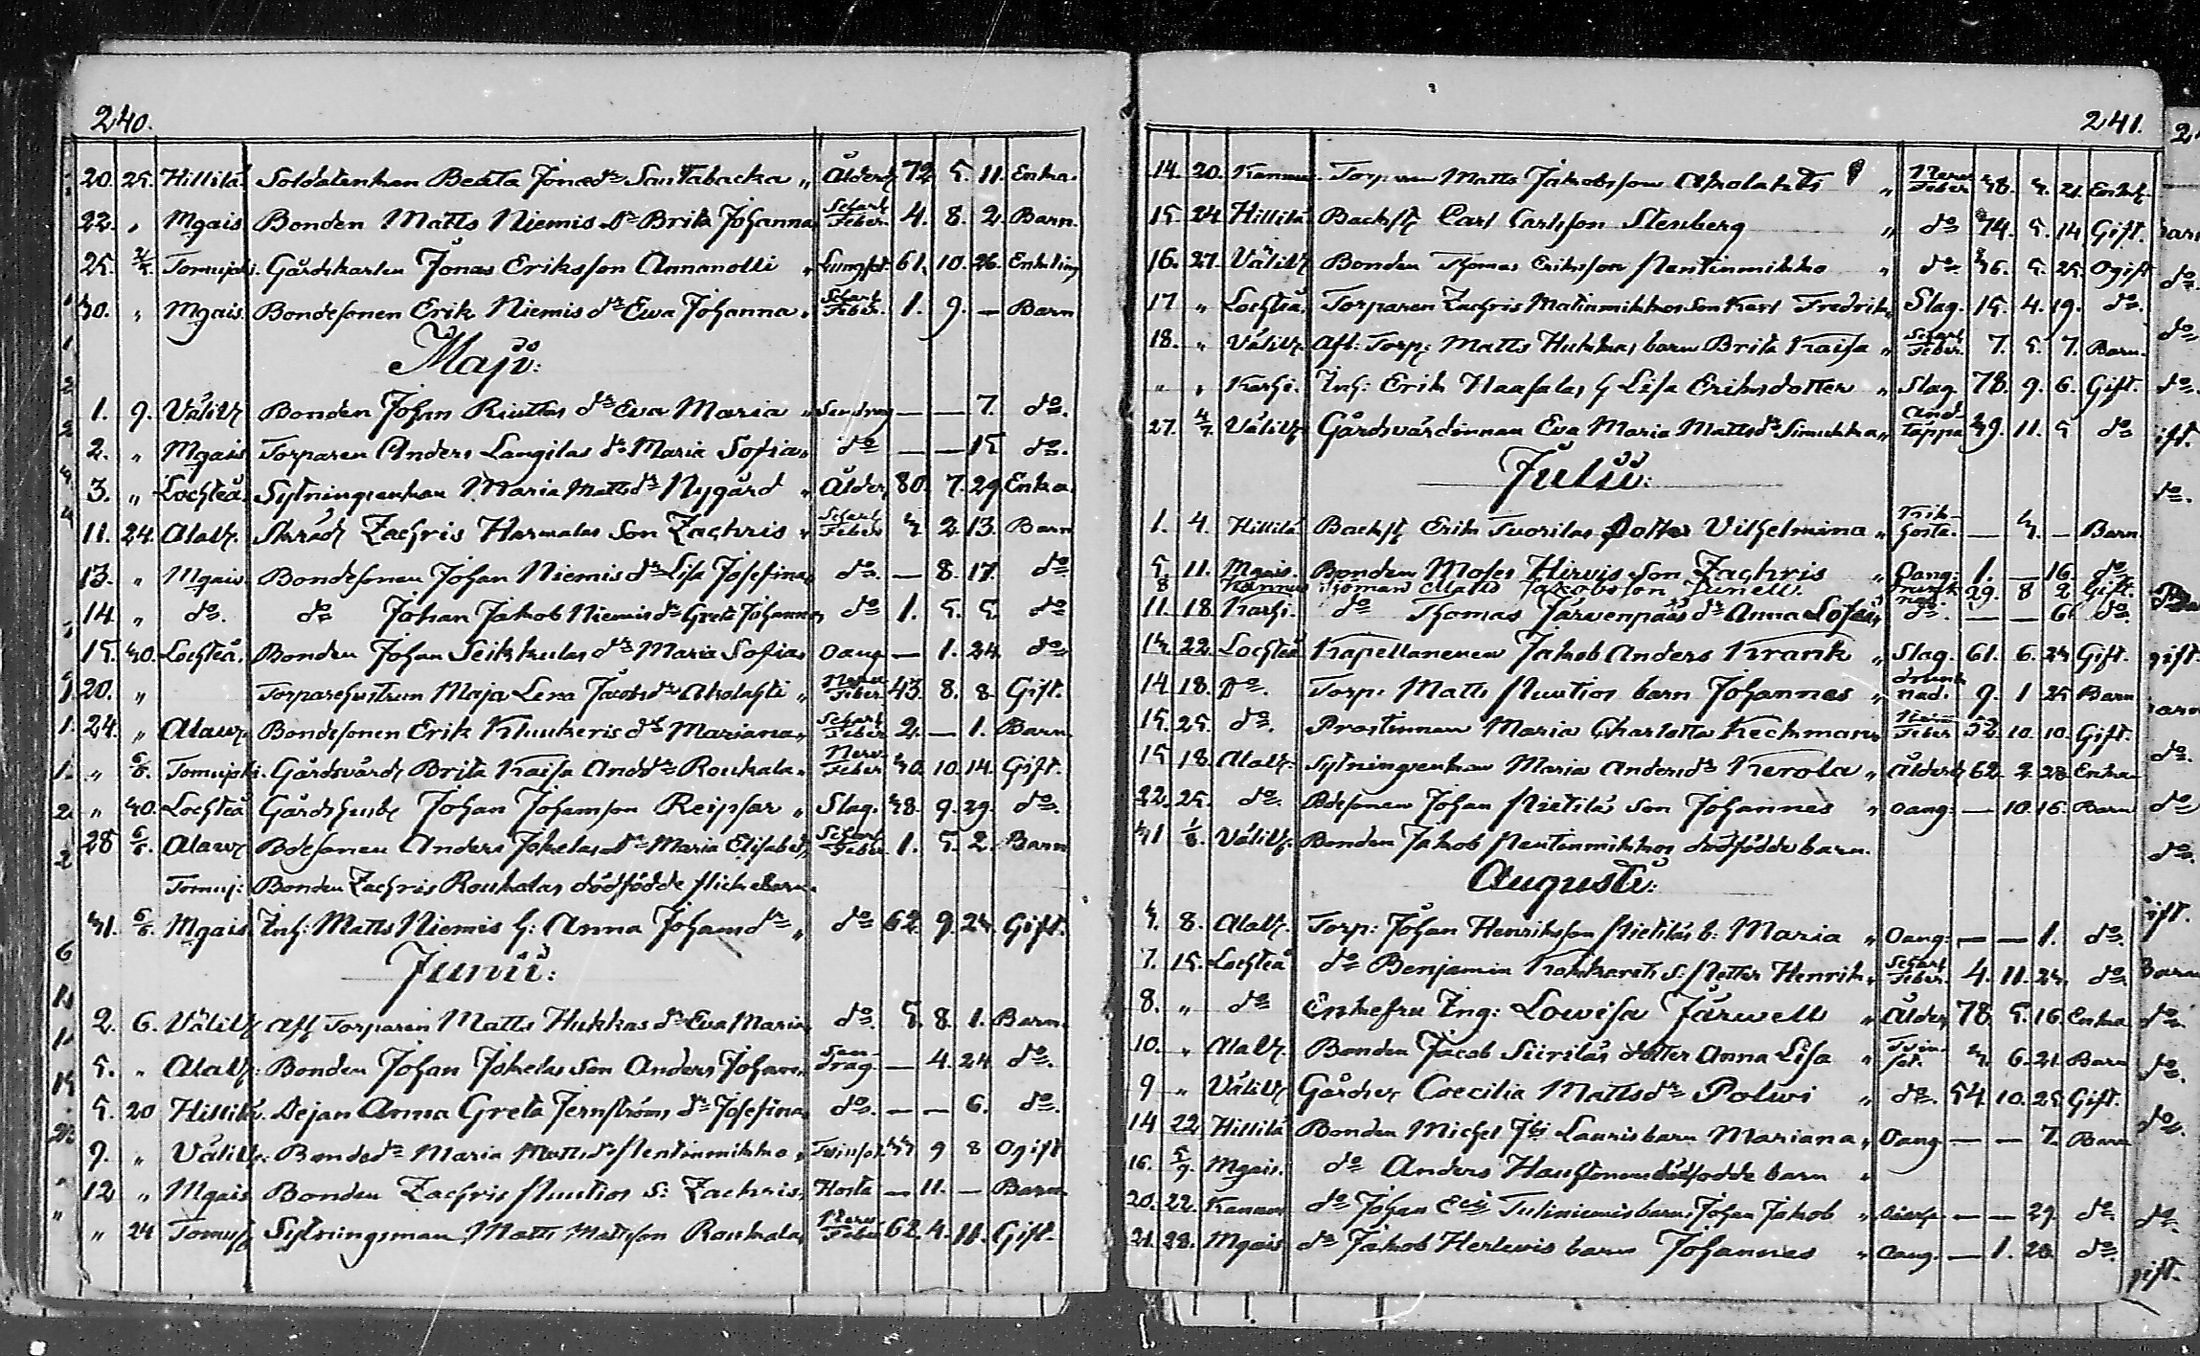 240.
20. 25. Hillilä. Soldatenkan Beata Jonædr Santabacka " Ålderd 72. 5. 11. Enka.
22. " Mgais Bonden Matts Niemis dr Brita Johanna Scharl Feber. 4. 8. 2. Barn.
25. Tomujoki. Gårdskarlen Jonas Eriksson Annanolli " Lungst. 61. 10. 26. Enkling
30. " Mgais. Bondesonen Erik Niemis dr Ewa Johanna " Scharl Feber. 1. 9. — Barn
Maji:
1. 9. Wälik. Bonden Johan Riuttas dr Eva Maria " Sendrag — — 7. do.
2. " Mgais Torparen Anders Langilas dr Maria Sofia " do — — 15 do.
3. " Lochteå. Sytningsenkan Maria Mattsdr Nygård " Ålder, 80. 7. 29. Enka.
11. 24. Alavk. Skrädd Zachris Harmalas Son Zachris " Scharl Feber 3. 2. 13. Barn
13. " Mgais Bondesonen Johan Niemis dr Lisa Josefina " do. — 8. 17. do
14 " do. do Johan Jakob Niemis dr Greta Johanna, do 1. 5. 5. do
15. 30. Lochteå. Bonden Johan Seikkulas dr Maria Sofia " Oang — 1. 24. do
20. " Torparehustrun Maja Lena Jacobsdr Akolahti " Nerv Feber 43. 8. 8. Gift.
24. " Alavk. Bondesonen Erik Kluukeris dr Mariana " Scharl Feber 2. — 1. Barn.
" 6/6. Tomujoki. Gårdsvärd Brita Kaisa Andsdr Roukala " Nerv Feber 30. 10. 14. Gift.
" 30. Lochteå Gårdshusb Johan Johansson Reipsar " Slag. 38. 9. 29. do.
28 6/6. Alavk Bdesonen Anders Jokelas dr Maria Elisabet, Scharl Feber 1. 5. 2. Barn
Tomuj: Bonden Zachris Roukalas dödfödde flickebarn.
31. 6/6. Mgais Inh: Matts Niemis h: Anna Johansdr " do 62. 9. 23. Gift.
Junii:
2. 6. Wälik Afl Torparen Matts Hukkas dr Eva Maria do. 5. 8. 1. Barn.
5. " Alavk: Bonden Johan Jokelas Son Anders Johan " Sendrag — 4. 24 do.
5. 20 Hillilä. Dejan Anna Greta Jernströms dr Josefina do. — — 6. do.
9. " Wälik: Bondedr Maria Mattsdr Nentinmikko " Twinsot. 33 9 8 Ogift
12 " Mgais Bonden Zachris Nuutios S: Zachris Hosta — 11. — Barn.
" 24 Tomuj Sytningsman Matts Mattsson Roukala, Nerv Feber 62. 4. 11. Gift.
241.
14. 20. Kannus. Torparen Matts Jakobsson Akolahti " Nerv Feber 38. 3. 21. Enkl.
15 24. Hillilä Backst Carl Carlsson Stenberg " do 74. 5. 14. Gift.
16. 27. Wälik Bonden Thomas Eriksson Nentinmikko " do. 36. 5. 25. Ogift
17 " Lochteå. Torparen Zachris Matinmikkos Son Karl Fredrik " Slag. 15. 4. 19. do.
18. " Wälik. Afl: Torp: Matts Hukkas barn Brita Kaisa " Scharl Feber 7. 5. 7. Barn.
" " Karhi. Inh: Erik Haasalas h Lisa Eriksdotter " Slag 78. 9. 6. Gift.
27. 4/7. Wälik. Gårdsvärdinnan Eva Maria Mattsdr Simukka " And täppa 39. 11. 5 do
Julii:
1. 4. Hillilä Backst Erik Tuorilas Dotter Vilhelmina " Kikhosta. — 3. — Barn
5 11. Mgais. Bonden Moses Hirvis Son Zachris " Oang: 1. — 16. do
8 Kannus Matts Jakobsson Junell. drunknad 29. 8 2 Gift.
11. 18 Karhi. do Thomas Järvenpääs dr Anna Sofia, do. — — 6. do.
13. 22. Lochteå Kapellanen Jakob Anders Krank " Slag. 61. 6. 23 Gift.
14 18. Do. Torp: Matts Nuutios barn Johannes " drunknad. 9. 1 25 Barn
15. 25. do. Prostinnan Maria Charlotta Keckman " Nerv Feber 52. 10. 10. Gift.
15 18. Alavk. Sytningsenkan Maria Andersdr Kerola " Ålderd 62. 2. 28. Enka
22. 25. do. Bdesonen Johan Nietilä Son Johannes " Oang: — 10. 16. Barn
31 1/8. Wälik. Bonden Jakob Nentinmikkos dödfödde barn.
Augusti:
3. 8. Alavk. Torp: Johan Henriksson Nietiläs b: Maria " Oang: — — 1. do.
7. 15. Lochteå do Benjamin s: Petter Henrik " Scharl Feber. 4. 11. 23. do.
8. " do Enkefru Ing: Lowisa Färwell " Ålder, 78. 5. 16. Enka
10. " Alavk. Bonden Jacob Siiriläs dotter Anna Lisa " Twinsot. 3. 6. 21. Barn
9 " Wälik Gårdsv Coecilia Mattsdr Polwi " do. 54. 10. 25. Gift.
14 22. Hillilä Bonden Michel Lauris barn Mariana " Oang — — 7. Barn
16. 5/9. Mgais. do Anders Hautonens dödfödde barn "
20. 22. Kannus do Johan Tuliniemis barn Johan Jakob " — — 29. do.
21. 28. Mgais do Jakob Herlevis barn Johannes " Oang. — 1. 28. do.